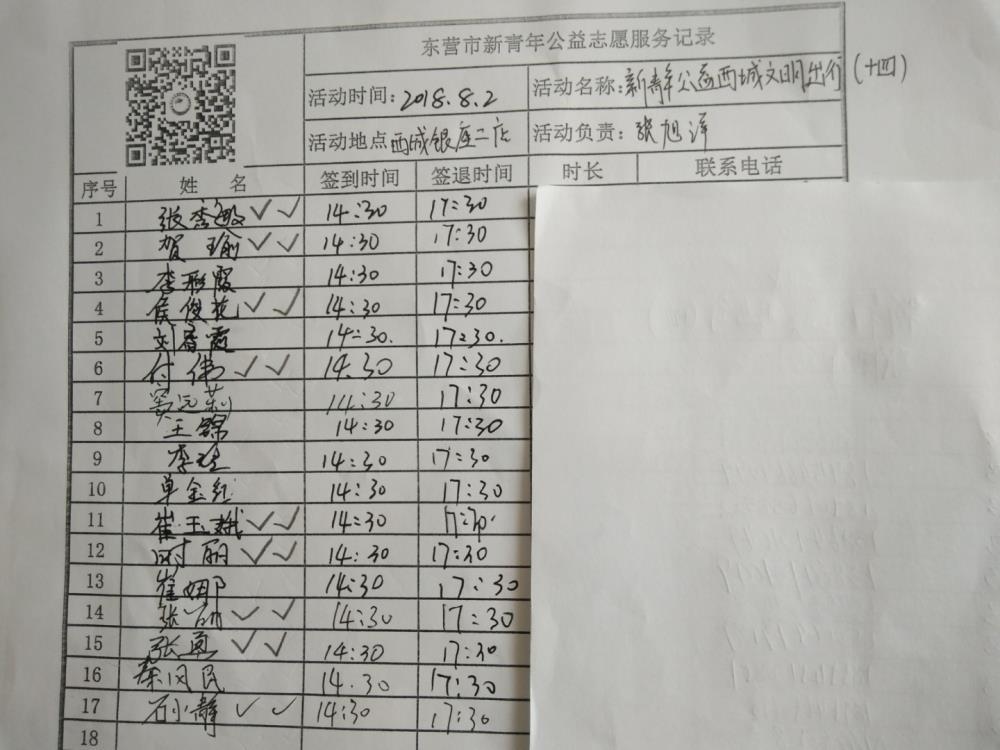 东营市新青年公益志愿服务记录
活动时间：2018.8.2 活动名称：新青年公益西城文明出行（十四）
活动地点 西城银座二店 活动负责：张旭洋
序号 姓名 签到时间 签退时间 时长 联系电话
1 张秀敏 ✓✓ 14:30 17:30
2 贺瑜 ✓✓ 14:30 17:30
3 李彩霞 14:30 17:30
4 侯俊花 ✓✓ 14:30 17:30
5 刘春霞 14:30. 17:30.
6 付伟 ✓✓ 14.30 17:30
7 窦远莉 14:30 17:30
8 王锦 14:30 17:30
9 李 14:30 17:30
10 单金红 14:30 17:30
11 崔玉娥 ✓✓ 14:30 17:30.
12 时丽 ✓✓ 14:30 17:30
13 崔娜 14:30 17:30
14 张 ✓✓ 14:30 17:30
15 张 ✓✓ 14:30 17:30
16 秦风民 14.30 17:30
17 石小静 ✓✓ 14:30 17:30
18